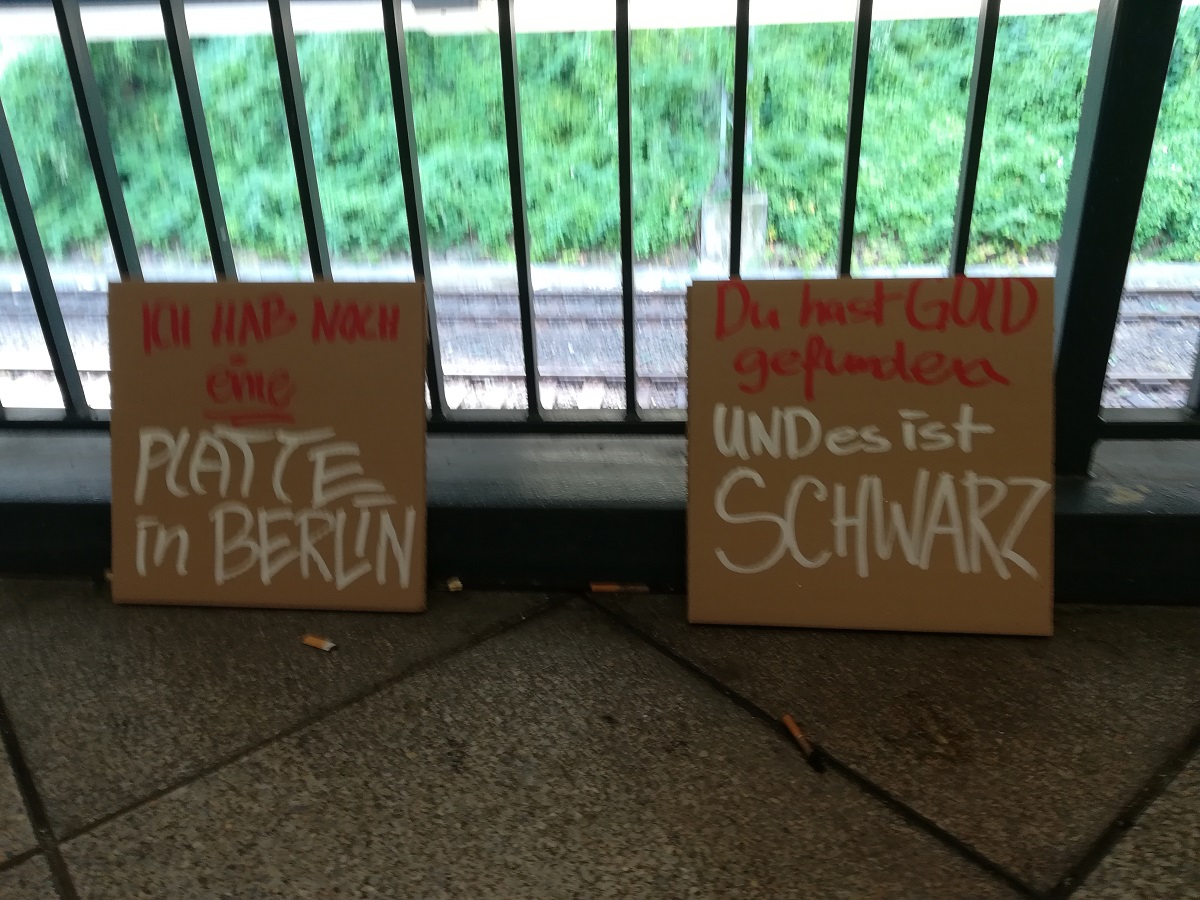 ICH HAB NOCH
eine
PLATTE
in BERLIN
Du hast GOLD
gefunden
UND es ist
SCHWARZ